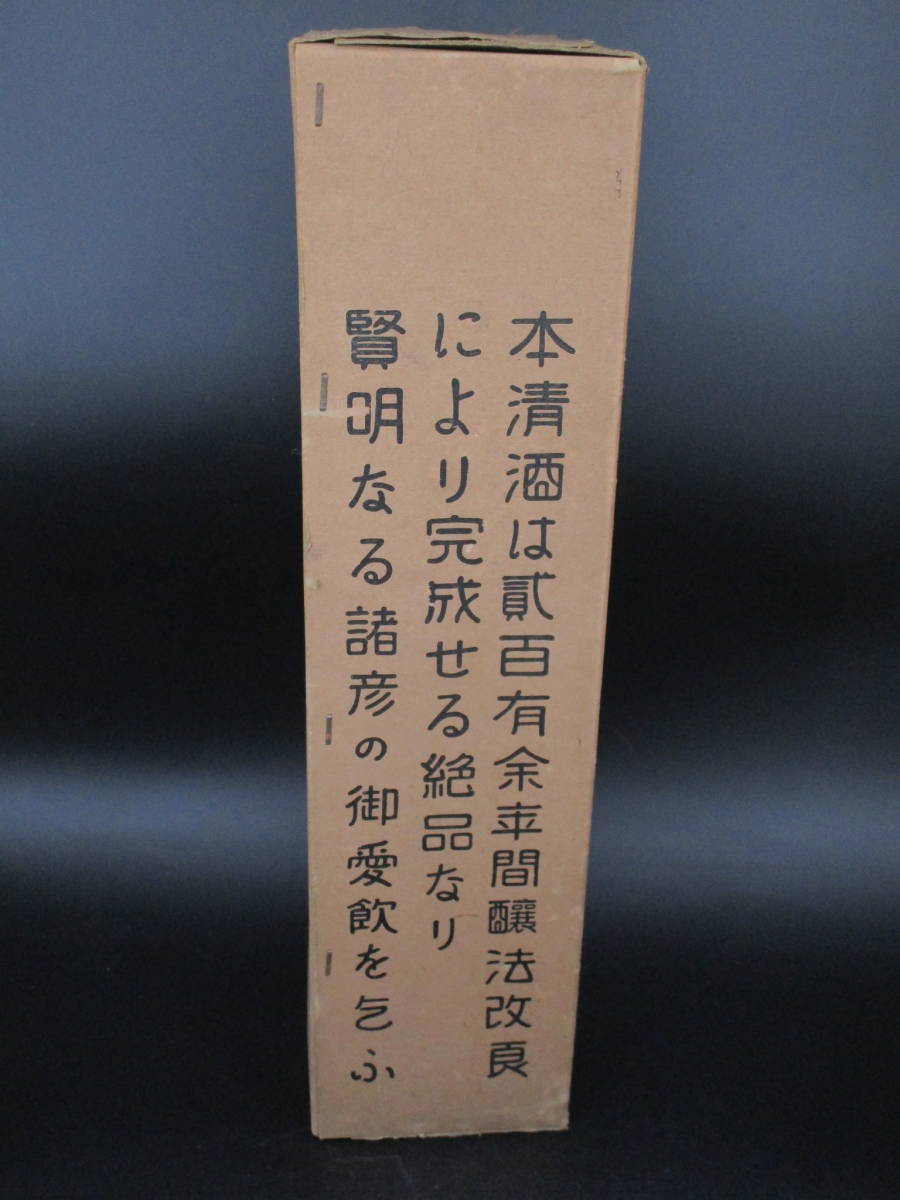 本清酒は貳百有余年間醸法改良
により完成せる絶品なり
賢明なる諸彦の御愛飲を乞ふ